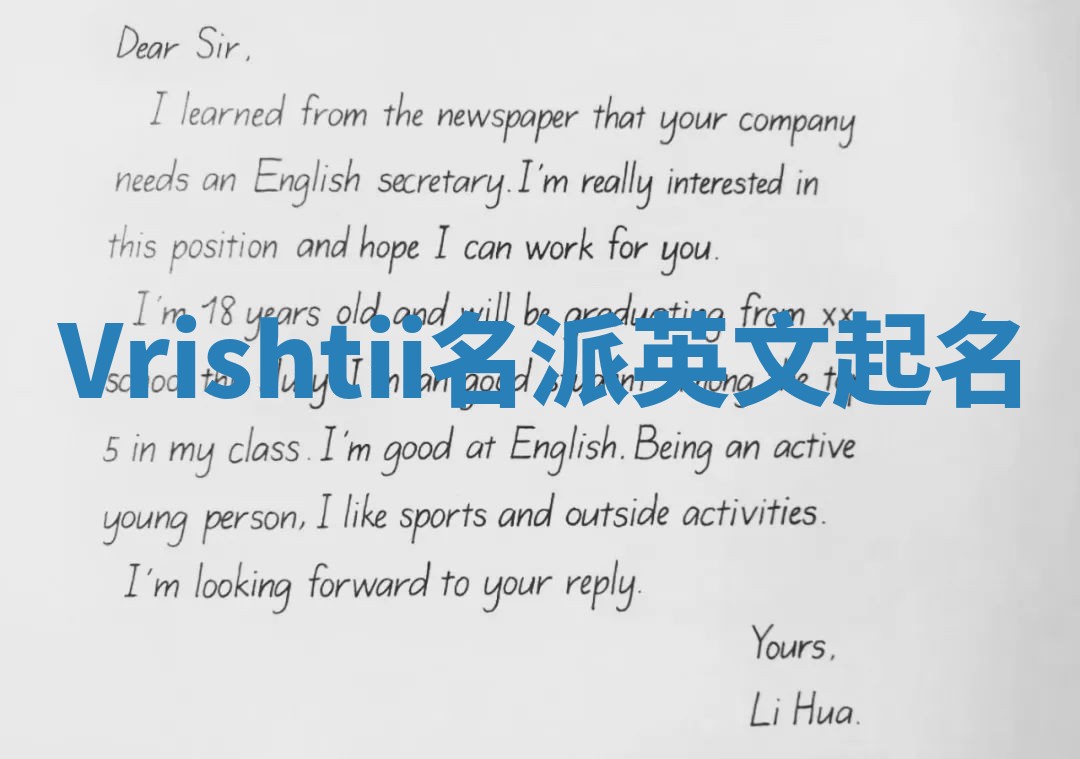 Dear Sir,
I learned from the newspaper that your company
needs an English secretary. I'm really interested in
this position and hope I can work for you.
I'm 18 years old and will be graduating from xx
Vrishtii名派英文起名
school this July. I'm an good student among the top
5 in my class. I'm good at English. Being an active
young person, I like sports and outside activities.
I'm looking forward to your reply.
Yours,
Li Hua.